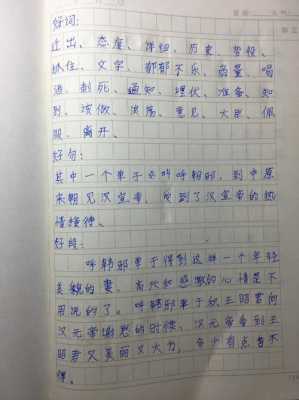 好词:
让出、态度、详细、历史、兽役、
抓住、文字、郁郁不乐、商量、喝
酒、刺死、通知、埋伏、准备、知
到、读做、决荡、意见、大臣、佩
服、离开、
好句:
其中一个单于名叫呼韩邪,到中原
来朝见汉宣帝,受到了汉宣帝的热
情接待。
好段:
呼韩邪单于得到这样一个年轻
美貌的妻,高兴和感激的心情是不
用说的了。呼韩邪单于欲王昭君向
汉元帝谢恩的时候,汉元帝看到王
昭君又美丽又大方,多少有点舍不
得。